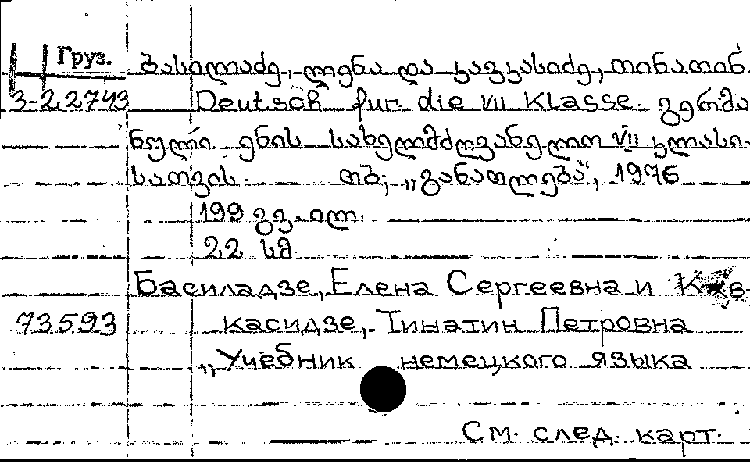 Груз.
ბასილაძე, ლენა და კავკასიძე, თინათინ.
3-22743 Deutsch fur die VII Klasse. გერმა
ნული ენის სახელმძღვანელო VII კლასი-
სათვის. თბ; „განათლება", 1976
199 გვ. ილ.
22 სმ
Басиладзе, Елена Сергеевна и Кав-
73593 касидзе, Тинатин Петровна
„Учебник немецкого языка
См. след. карт.